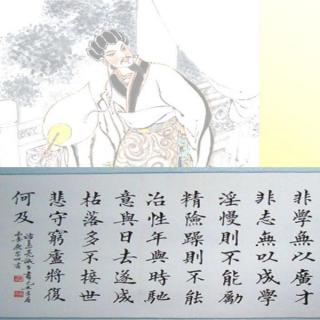 非學無以廣才
非志無以成學
淫慢則不能勵
精險躁則不能
冶性年與時馳
意與日去遂成
枯落多不接世
悲守窮廬將復
何及